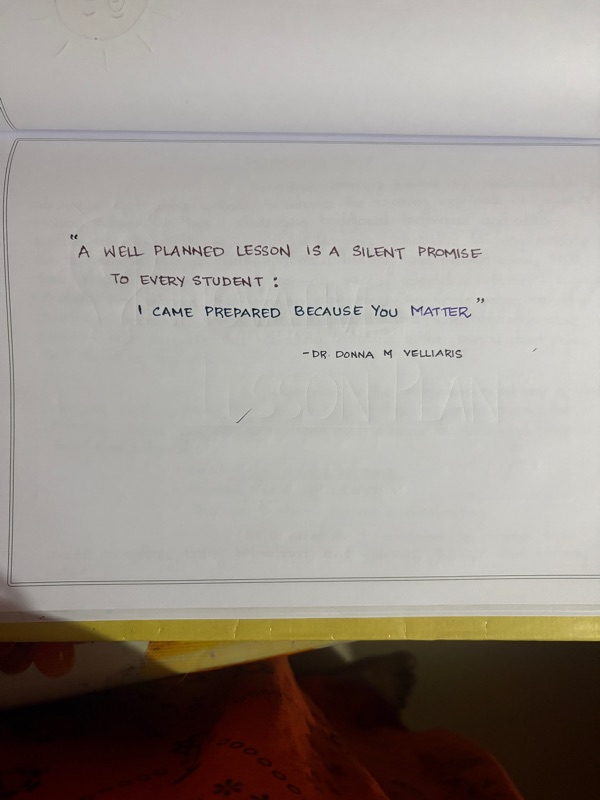 "A WELL PLANNED LESSON IS A SILENT PROMISE
TO EVERY STUDENT :
I CAME PREPARED BECAUSE YOU MATTER"
- DR. DONNA M VELLIARIS
LESSON PLAN